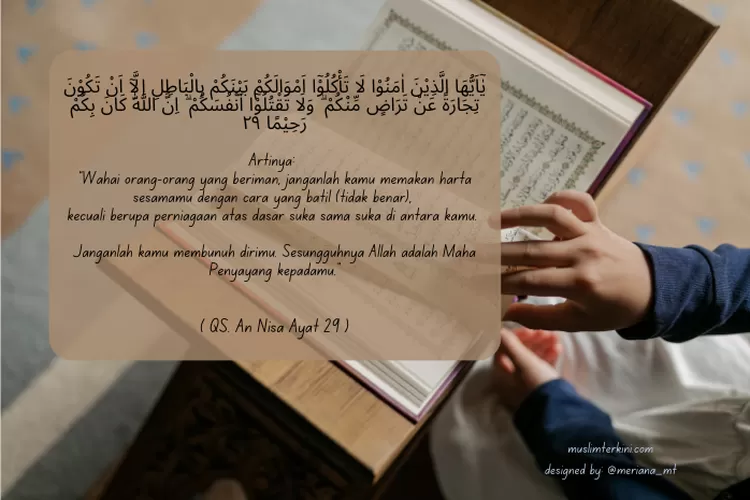 يٰٓاَيُّهَا الَّذِيْنَ اٰمَنُوْا لَا تَأْكُلُوْٓا اَمْوَالَكُمْ بَيْنَكُمْ بِالْبَاطِلِ اِلَّآ اَنْ تَكُوْنَ
تِجَارَةً عَنْ تَرَاضٍ مِّنْكُمْ ۗ وَلَا تَقْتُلُوْٓا اَنْفُسَكُمْ ۗ اِنَّ اللّٰهَ كَانَ بِكُمْ
رَحِيْمًا ٢٩
Artinya:
"Wahai orang-orang yang beriman, janganlah kamu memakan harta
sesamamu dengan cara yang batil (tidak benar),
kecuali berupa perniagaan atas dasar suka sama suka di antara kamu.
Janganlah kamu membunuh dirimu. Sesungguhnya Allah adalah Maha
Penyayang kepadamu."
( QS. An Nisa Ayat 29 )
muslimterkini.com
designed by: @meriana_mt